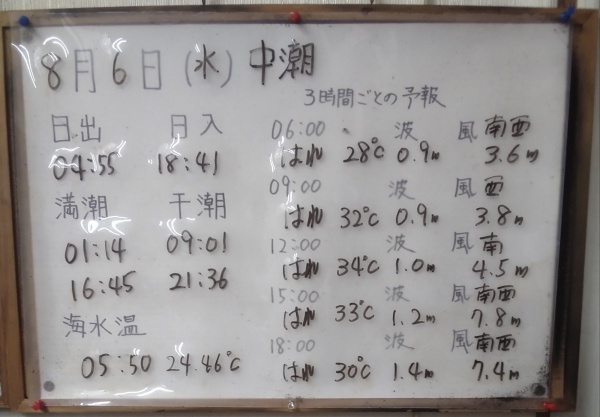 8月6日(水)中潮
3時間ごとの予報
日出 日入
04:55 18:41
満潮 干潮
01:14 09:01
16:45 21:36
海水温
05:50 24.46℃
06:00 波 風 南西
はれ 28℃ 0.9m 3.6m
09:00 波 風 西
はれ 32℃ 0.9m 3.8m
12:00 波 風 南
はれ 34℃ 1.0m 4.5m
15:00 波 風 南西
はれ 33℃ 1.2m 7.8m
18:00 波 風 南西
はれ 30℃ 1.4m 7.4m